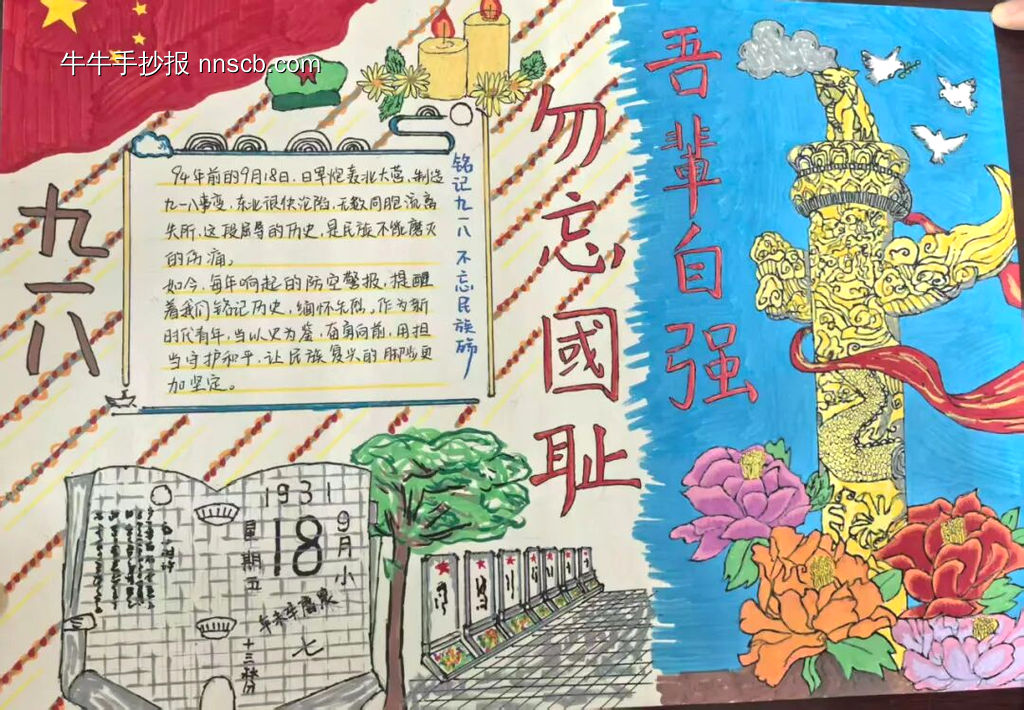 牛牛手抄报 nnscb.com
九一八
94年前的9月18日,日军炮轰北大营,制造
九一八事变,东北很快沦陷,无数同胞流离
失所。这段屈辱的历史,是民族不能磨灭
的伤痛。
如今,每年响起的防空警报,提醒
着我们铭记历史,缅怀先烈。作为新
时代青年,当以史为鉴,面向前,用担
当守护和平,让民族复兴的脚步更
加坚定。
铭记九一八 不忘民族殇
勿忘國耻
吾辈自强
1931
9月小
18
星期五
七
十三